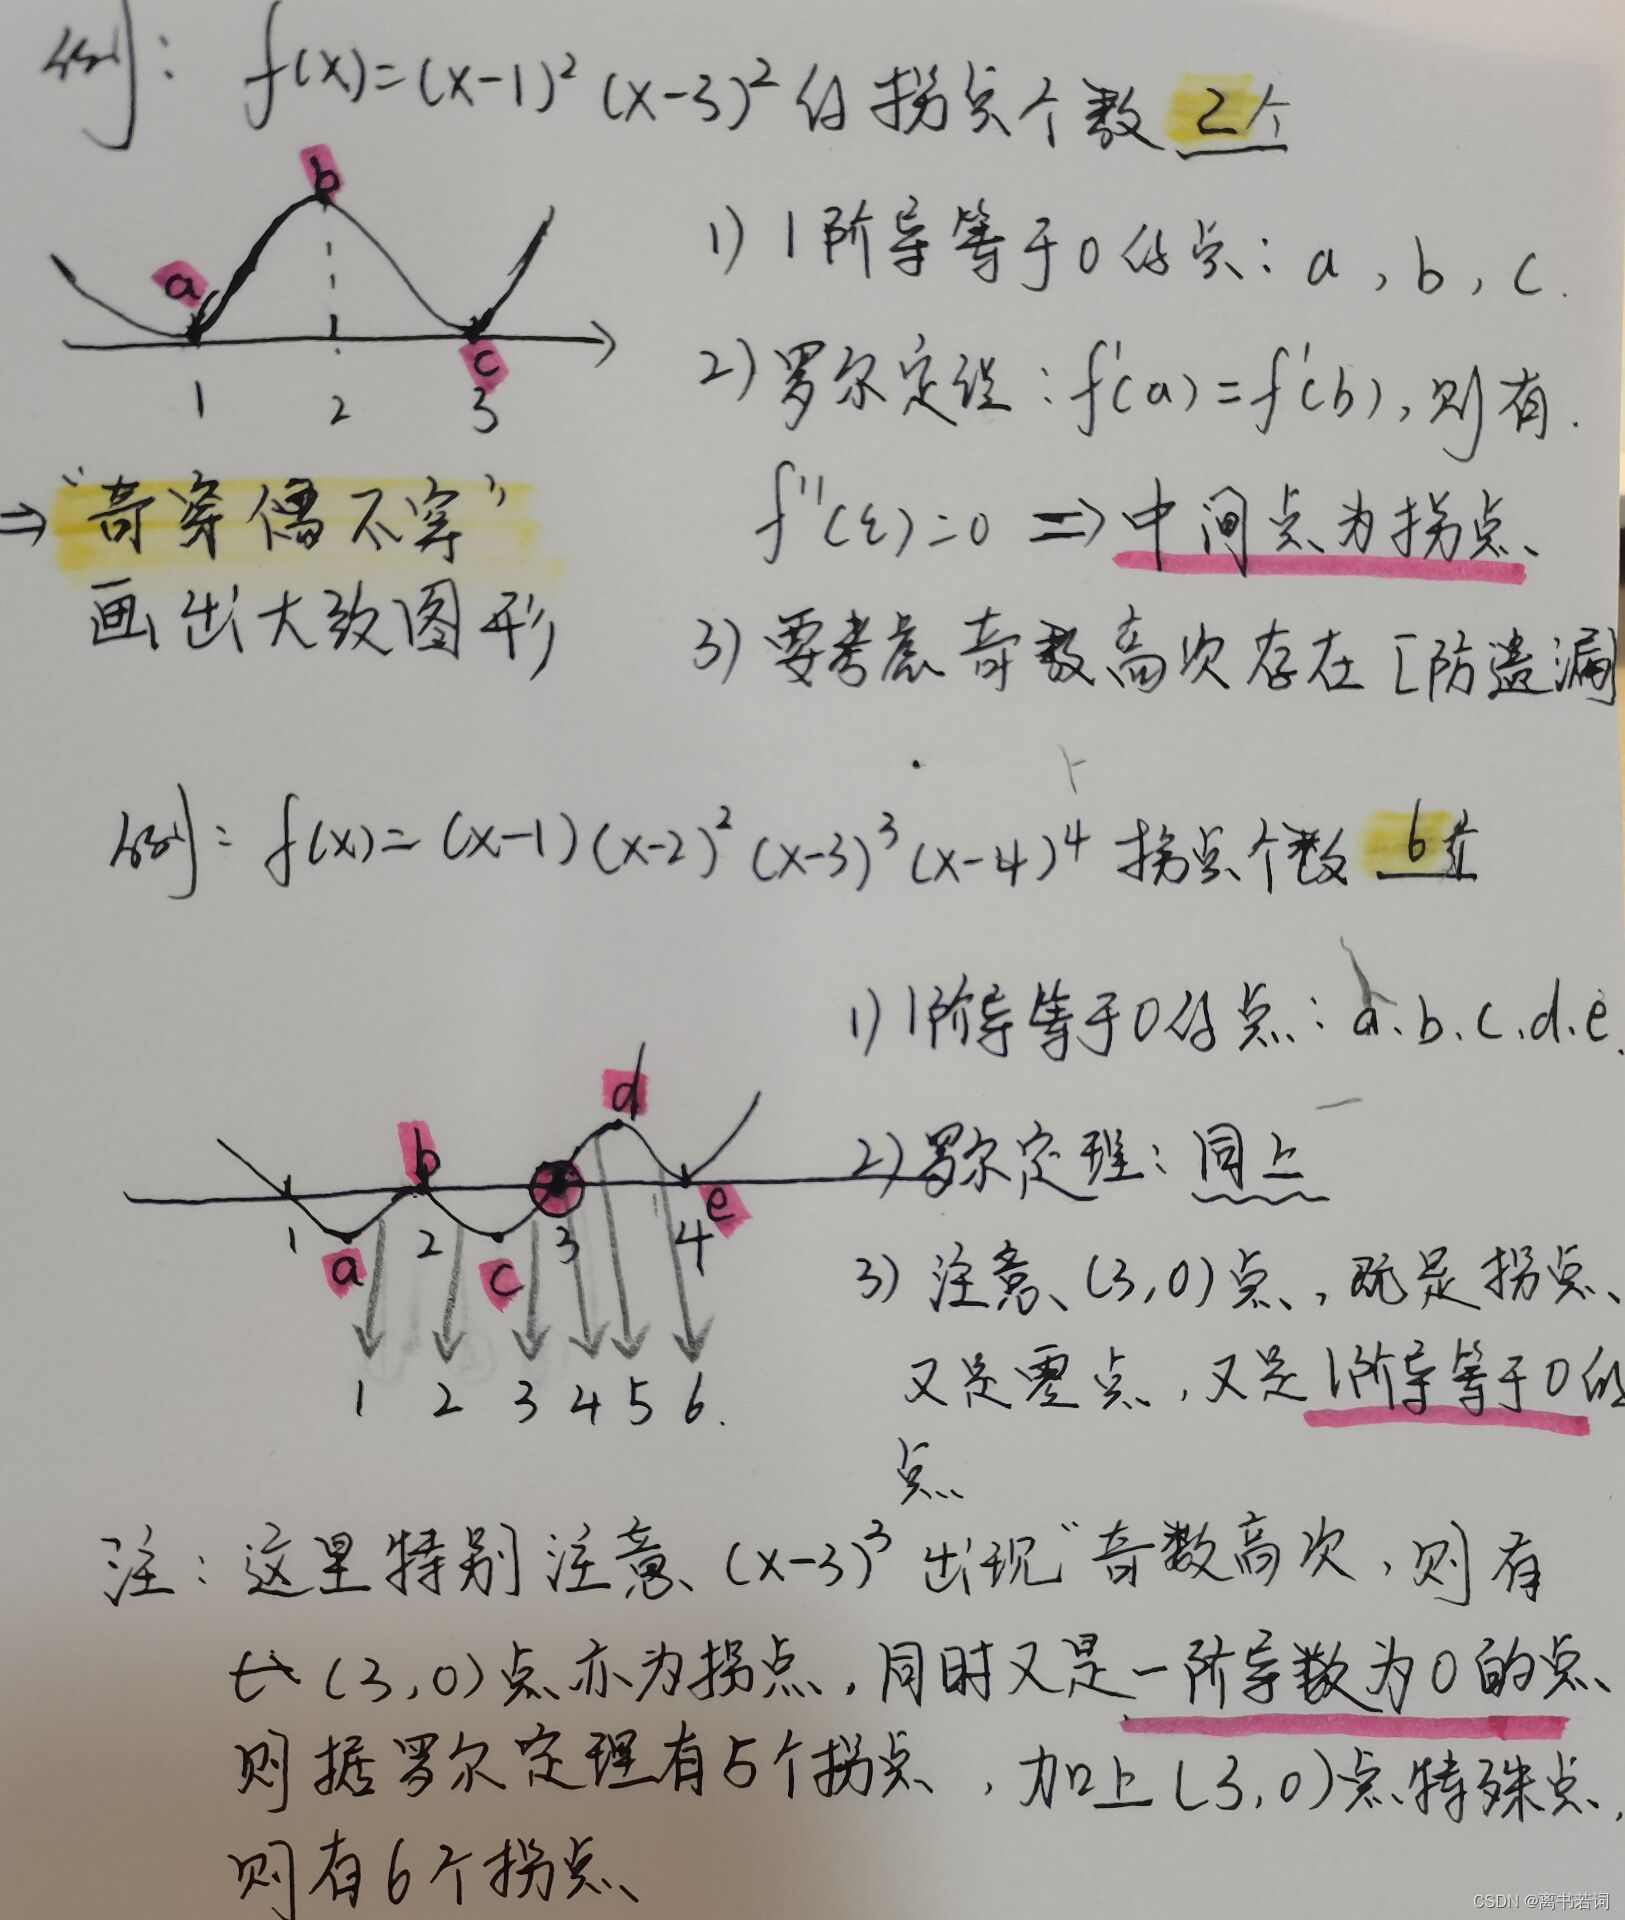 例: f(x)=(x-1)² (x-3)² 的拐点个数 2个
b
a
c
1 2 3
1) 1阶导等于0的点: a, b, c.
2) 罗尔定理: f'(a)=f'(b), 则有.
f''(ξ)=0 ⇒ 中间点为拐点
3) 要考虑奇数高次存在 [防遗漏]
⇒ “奇穿偶不穿”
画出大致图形
例: f(x)=(x-1)(x-2)²(x-3)³(x-4)⁴ 拐点个数 6个
1) 1阶导等于0的点: a.b.c.d.e.
d
b
e
1 2 3 4
a c
1 2 3 4 5 6.
2) 罗尔定理: 同上
3) 注意(3,0)点, 既是拐点
又是零点, 又是1阶导等于0的
点
注: 这里特别注意(x-3)³ 出现“奇数高次, 则有
(3,0)点亦为拐点, 同时又是一阶导数为0的点
则据罗尔定理有5个拐点, 加上(3,0)点特殊点,
则有6个拐点
CSDN @离书若词